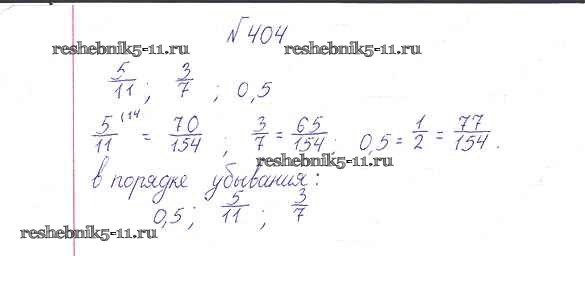 № 404
reshebnik5-11.ru reshebnik5-11.ru
5/11 ; 3/7 ; 0,5
5/11 (14 = 70/154 ; 3/7 = 65/154 ; 0,5 = 1/2 = 77/154 .
reshebnik5-11.ru
в порядке убывания:
0,5 ; 5/11 ; 3/7
reshebnik5-11.ru